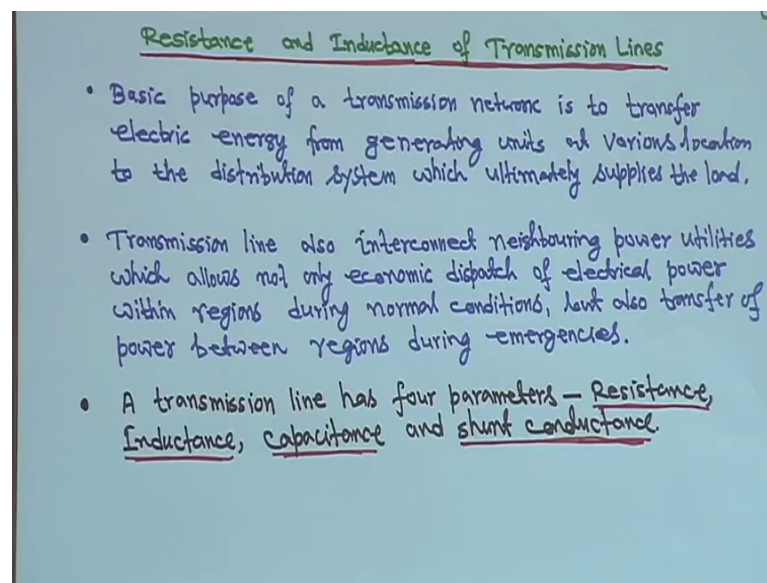 Resistance and Inductance of Transmission Lines
• Basic purpose of a transmission network is to transfer
electric energy from generating units at various location
to the distribution system which ultimately supplies the load.
• Transmission line also interconnect neighbouring power utilities
which allows not only economic dispatch of electrical power
within regions during normal conditions, but also transfer of
power between regions during emergencies.
• A transmission line has four parameters – Resistance,
Inductance, capacitance and shunt conductance.